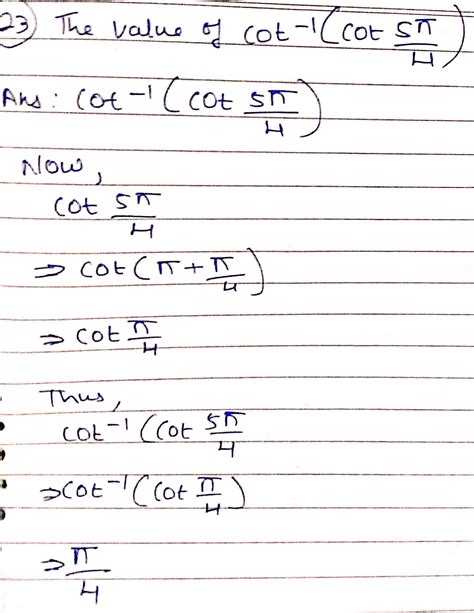 23) The value of cot⁻¹(cot 5π/4)
Ans: cot⁻¹(cot 5π/4)
Now,
cot 5π/4
⇒ cot(π + π/4)
⇒ cot π/4
Thus,
cot⁻¹(cot 5π/4
⇒ cot⁻¹(cot π/4)
⇒ π/4